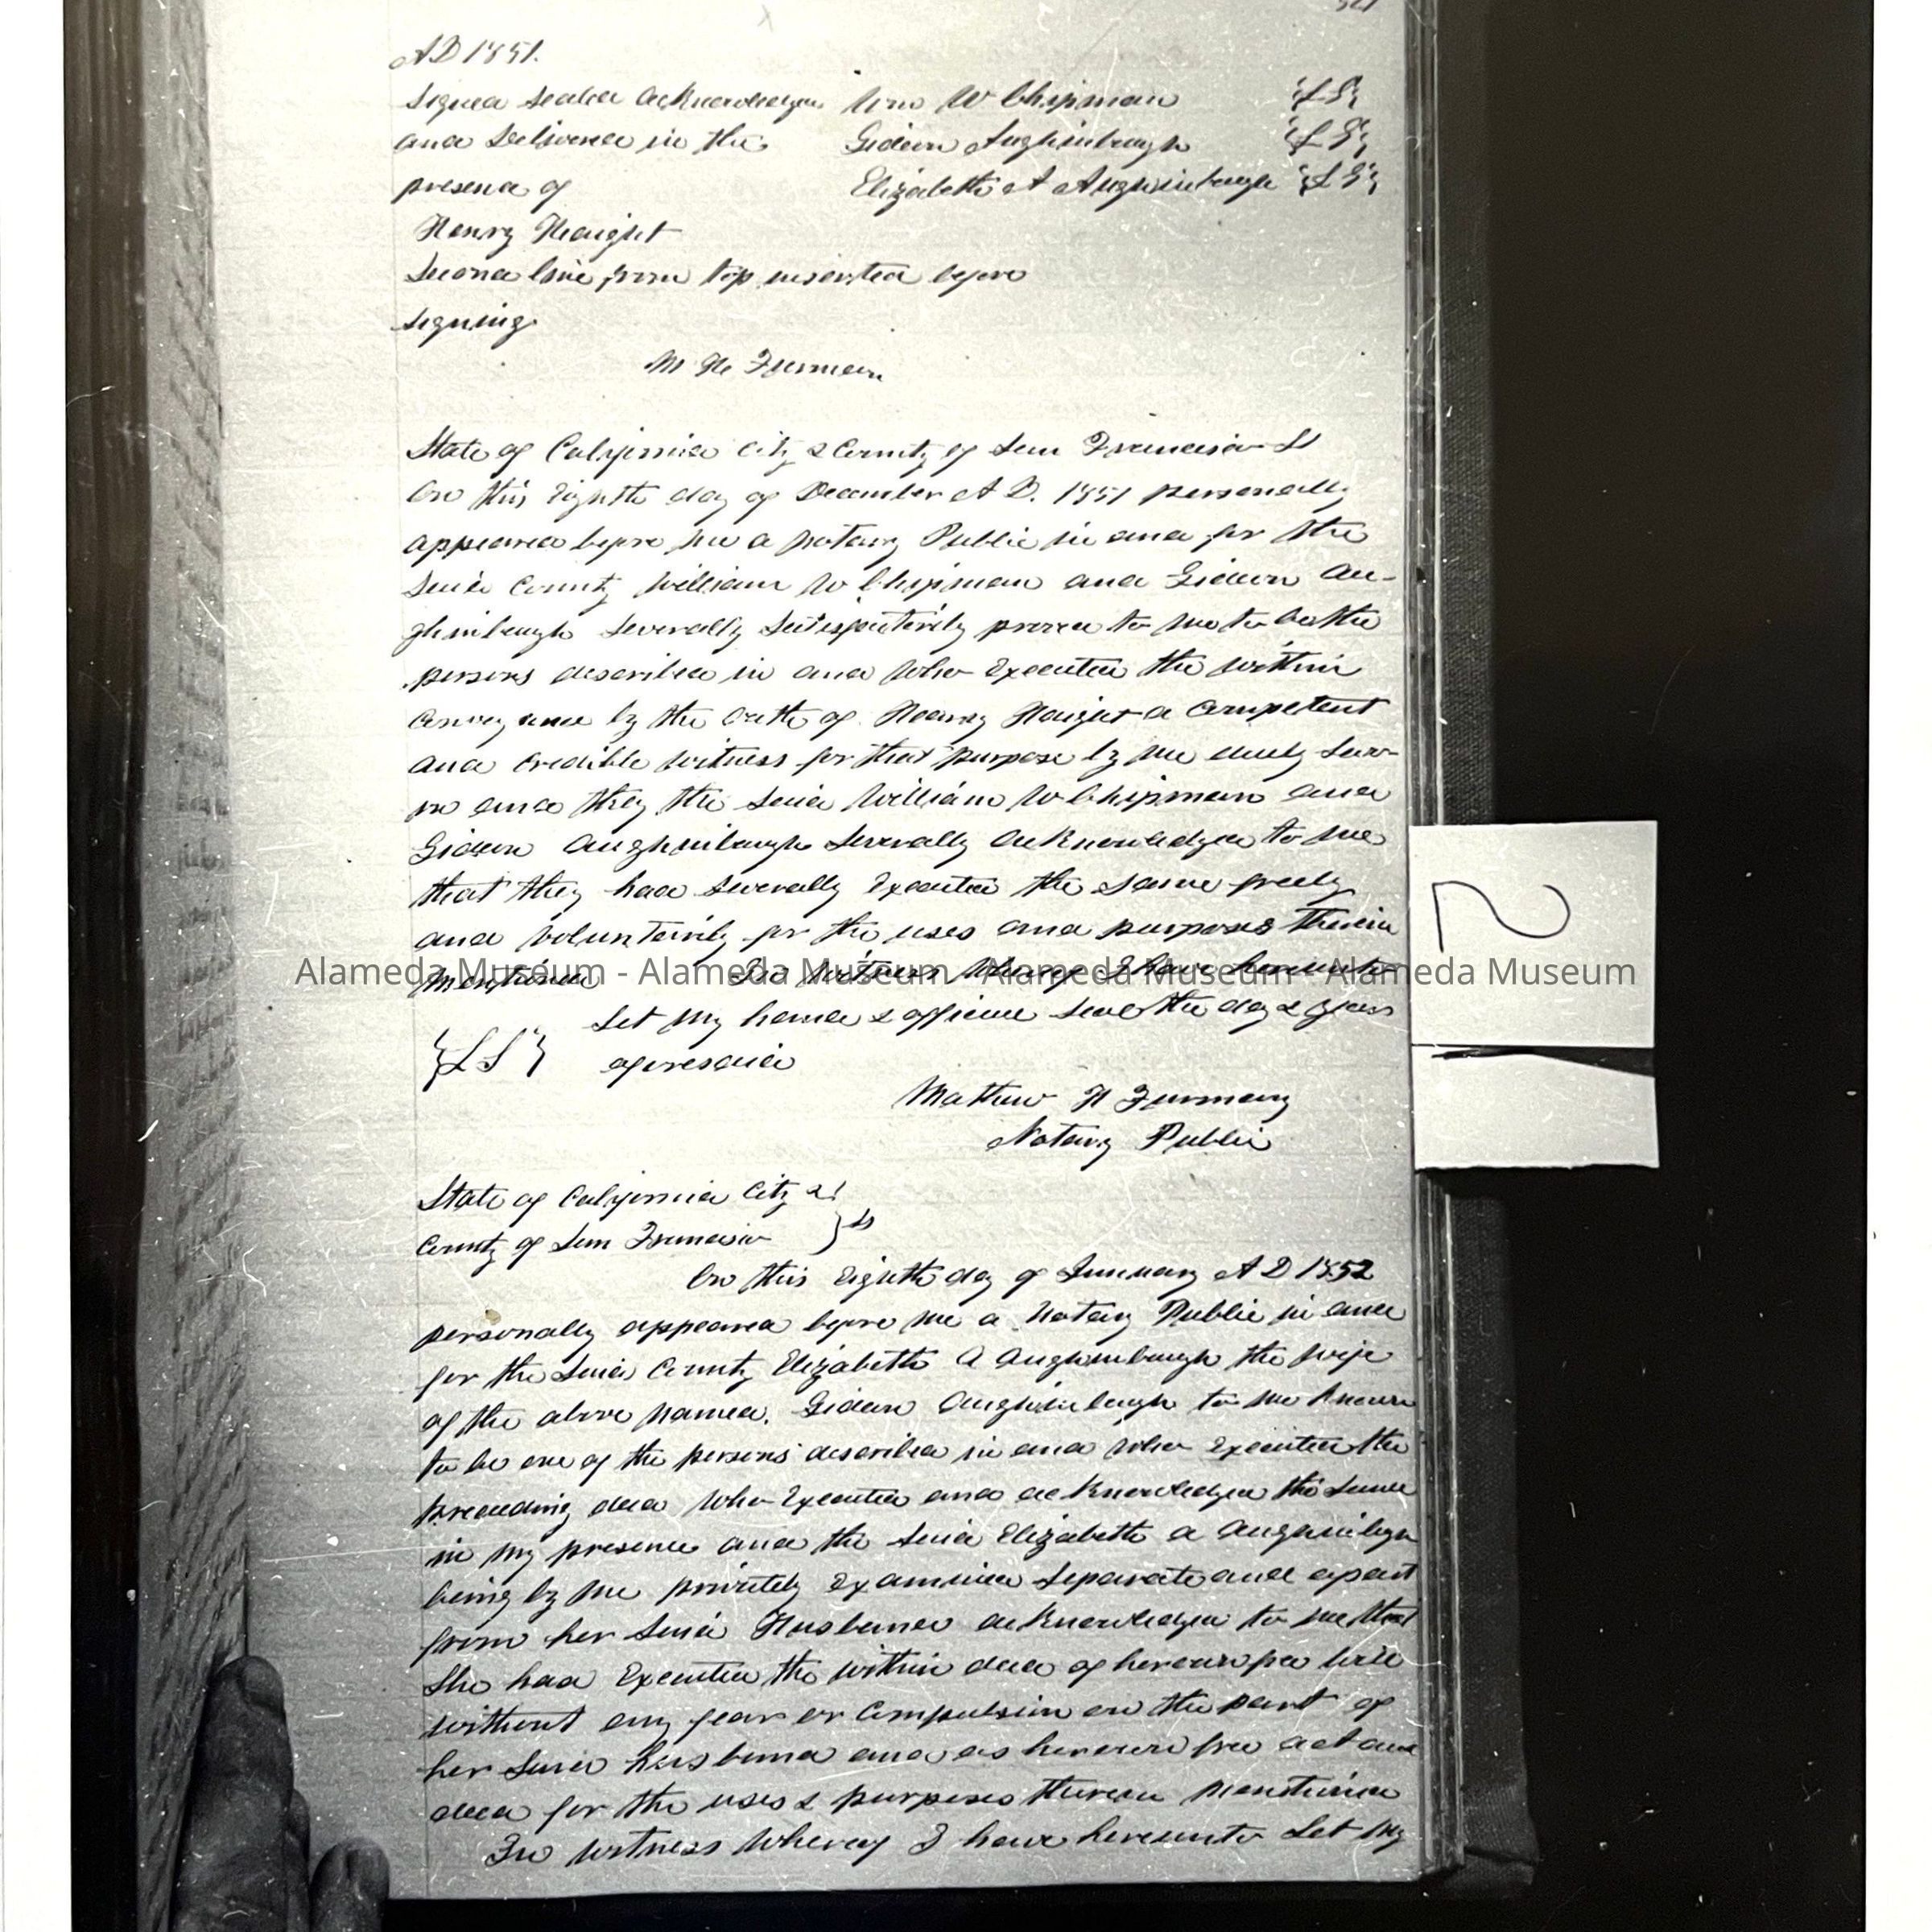 A D 1851.
Signed Sealed Acknowledged Wm W Chipman {LS}
and Delivered in the Gideon Aughinbaugh {LS}
presence of Elizabeth A Aughinbaugh {LS}
Henry Haight
Second line from top inserted before
signing
M H Furman
State of California City & County of San Francisco SS
On this Eighth day of December A D. 1851 personally
appeared before me a Notary Public in and for the
said County William W Chipman and Gideon Au-
ghinbaugh Severally Satisfactorily proved to me to be the
persons described in and who Executed the within
Conveyance by the Oath of Henry Haight a Competent
and Credible witness for that purpose by me duly Swor
n and they the said William W Chipman and
Gideon Aughinbaugh Severally Acknowledged to me
that they had severally Executed the same freely
and voluntarily for the uses and purposes therein
mentioned In witness whereof I have hereunto
Alameda Museum - Alameda Museum - Alameda Museum - Alameda Museum
Set my hand & official seal the day & year
{LS} aforesaid
Mathew H Furman
Notary Public
State of California City &
County of San Francisco } SS
On this Eighth day of January A D 1852
personally appeared before me a Notary Public in and
for the said County Elizabeth A Aughinbaugh the wife
of the above named. Gideon Aughinbaugh to me known
to be one of the persons described in and who Executed the
preceeding deed who Executed and acknowledged the same
in my presence and the said Elizabeth A Aughinbgh
being by me privately Examined separate and apart
from her said Husband acknowledged to me that
She had Executed the within deed of her own free will
without any fear or Compulsion on the part of
her said husband and as her own free act and
deed for the uses & purposes therein mentioned
In witness whereof I have hereunto Set my
2